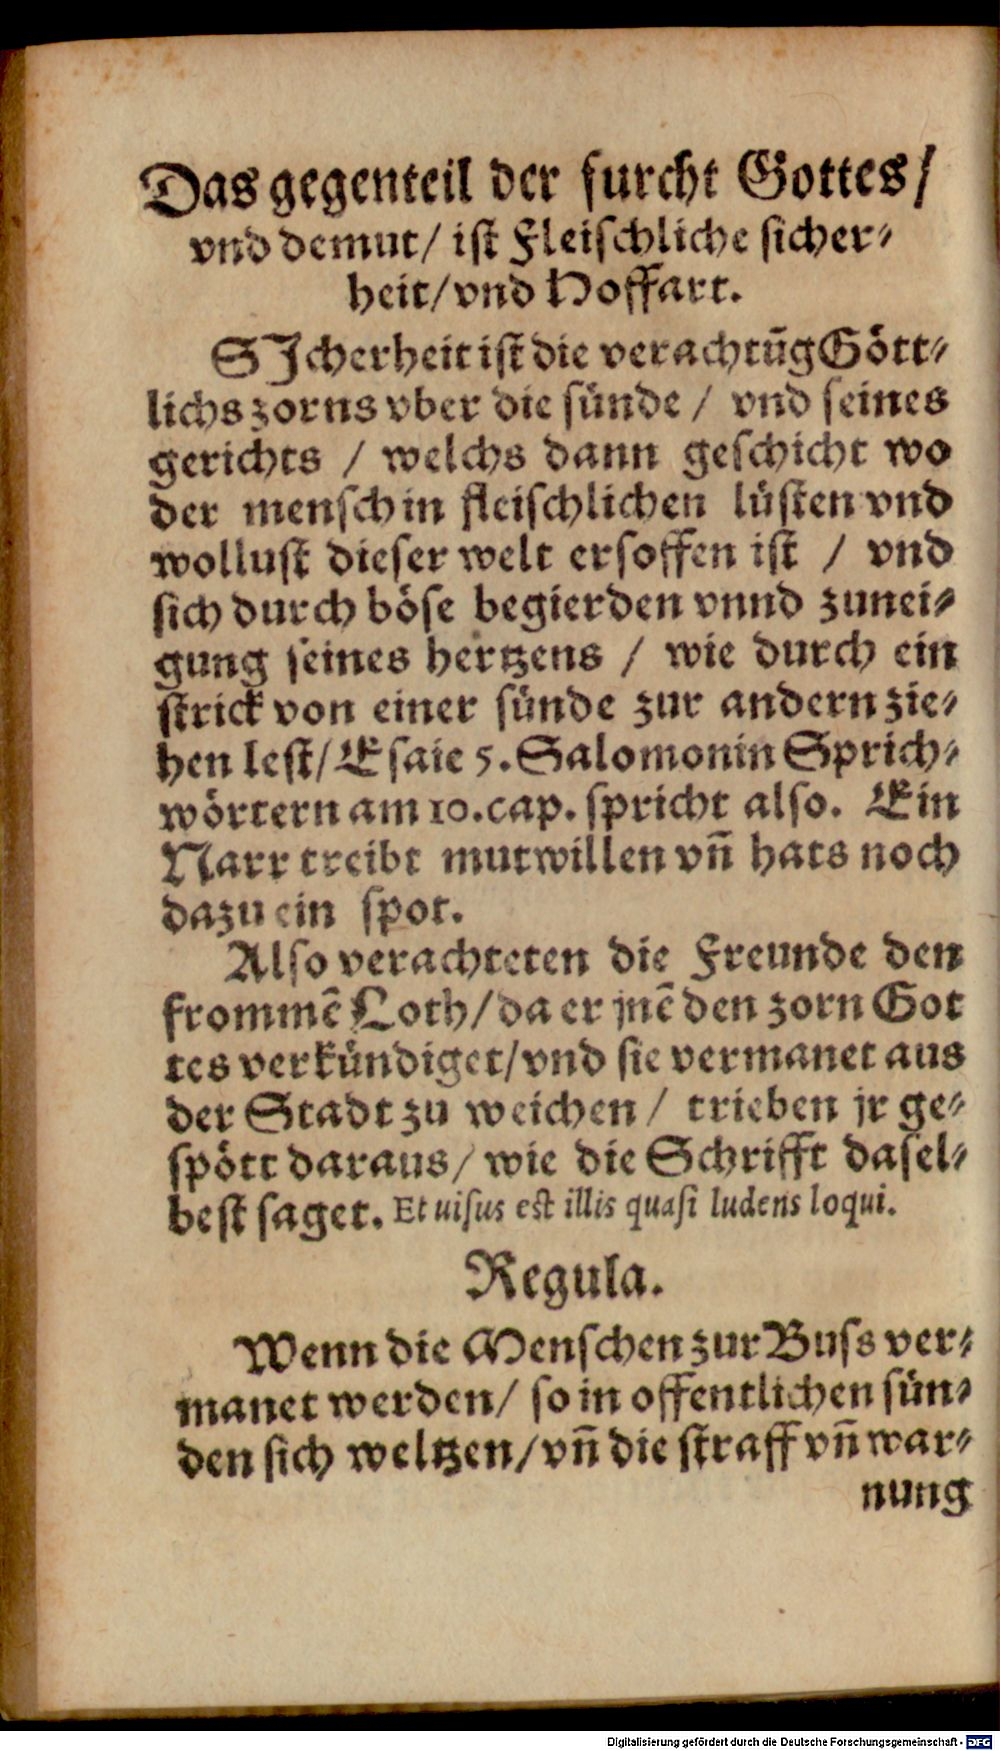 Das gegenteil der furcht Gottes/
vnd demut/ ist Fleischliche sicher⸗
heit/vnd Hoffart.
SIcherheit ist die verachtūg Gött⸗
lichs zorns vber die sünde / vnd seines
gerichts / welchs dann geschicht wo
der mensch in fleischlichen lüsten vnd
wollust dieser welt ersoffen ist / vnd
sich durch böse begierden vnnd zunei⸗
gung seines hertzens / wie durch ein
strick von einer sünde zur andern zie⸗
hen lest/ Esaie 5. Salomon in Sprich⸗
wörtern am 10. cap. spricht also. Ein
Narr treibt mutwillen vn̄ hats noch
dazu ein spot.
Also verachteten die Freunde den
frommē Loth/ da er jnē den zorn Got
tes verkündiget/vnd sie vermanet aus
der Stadt zu weichen / trieben jr ge⸗
spött daraus/ wie die Schrifft dasel⸗
best saget. Et uisus est illis quasi ludens loqui.
Regula.
Wenn die Menschen zur Buss ver⸗
manet werden/ so in offentlichen sün⸗
den sich weltzen/vn̄ die straff vn̄ war⸗
nung
Digitalisierung gefördert durch die Deutsche Forschungsgemeinschaft - DFG